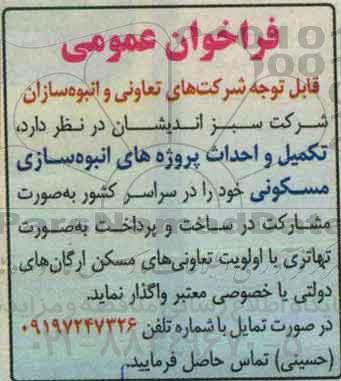 فراخوان عمومی
قابل توجه شرکت‌های تعاونی و انبوه‌سازان
شرکت سبز اندیشان در نظر دارد،
تکمیل و احداث پروژه های انبوه‌سازی
مسکونی خود را در سراسر کشور به‌صورت
مشارکت در ساخت و پرداخت به‌صورت
تهاتری با اولویت تعاونی‌های مسکن ارگان‌های
دولتی یا خصوصی معتبر واگذار نماید.
در صورت تمایل با شماره تلفن ۰۹۱۹۷۲۴۷۳۲۶
(حسینی) تماس حاصل فرمایید.